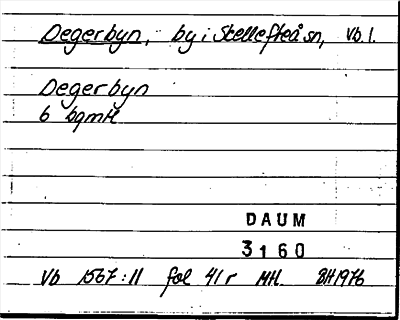 Degerbyn, by i Skellefteå sn, Vb. l.
Degerbyn
6 bgmH
DAUM
3160
Vb 1567:11 fol 41r MH. BH1976